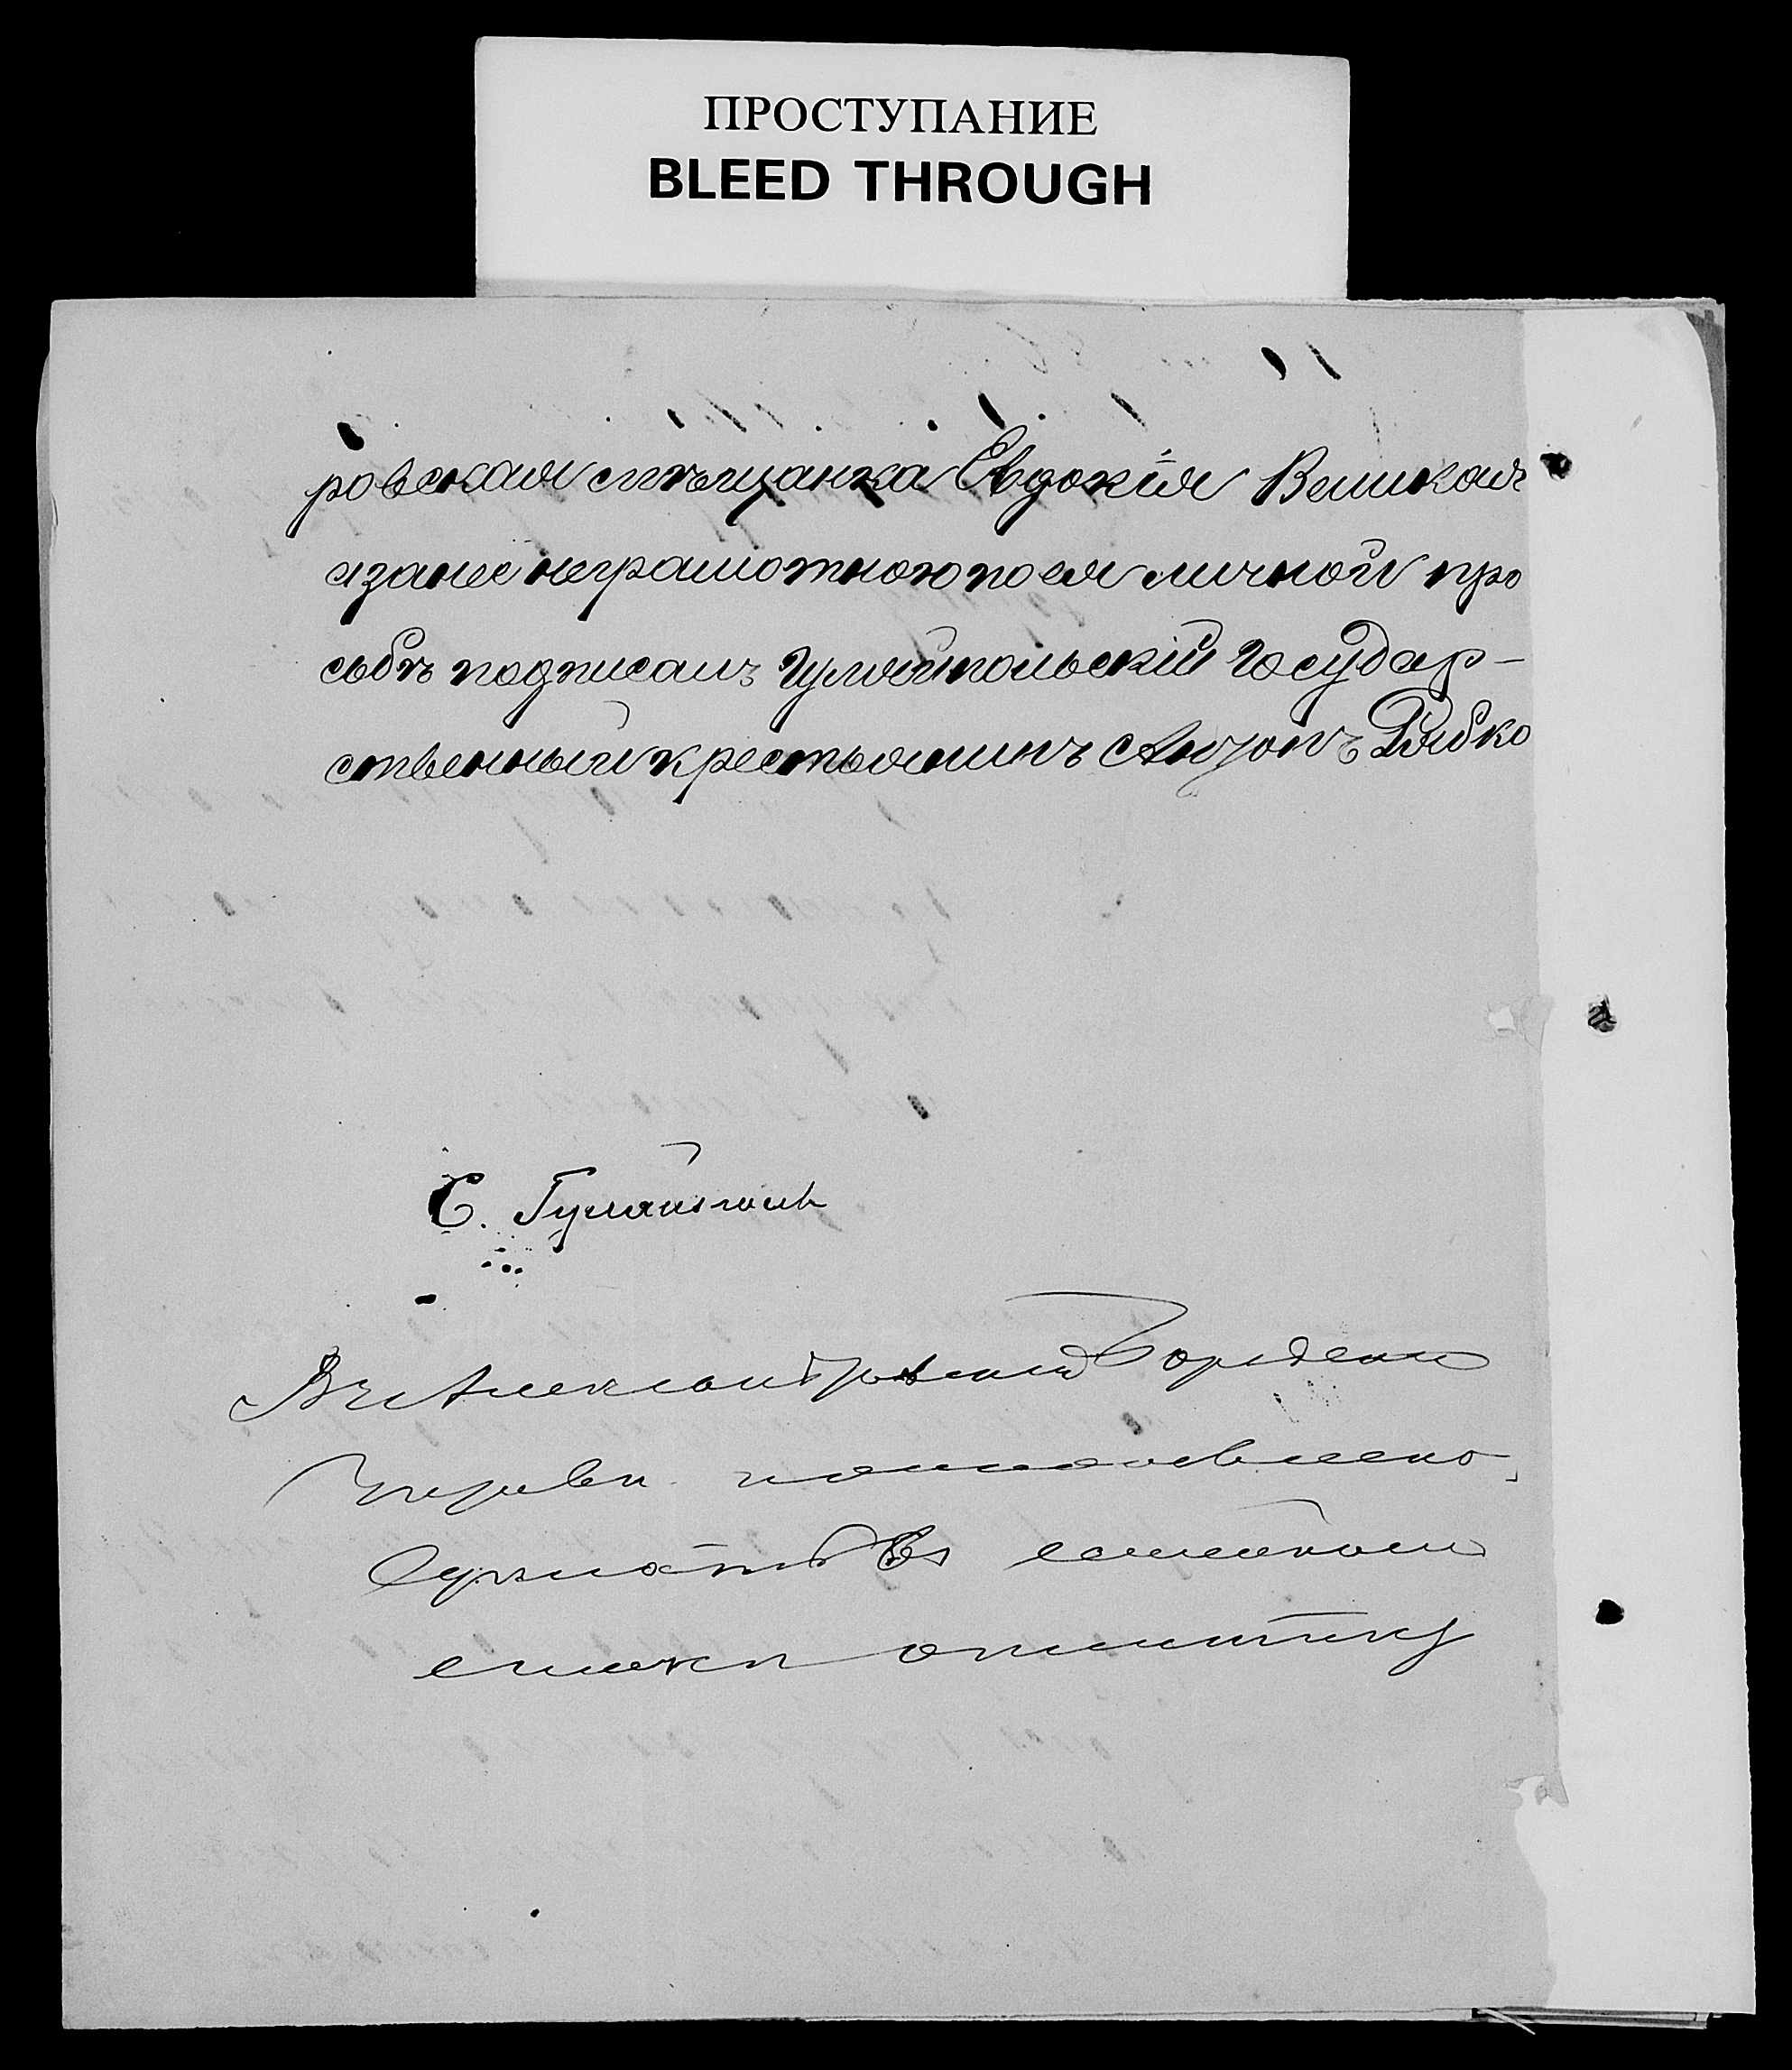 ПРОСТУПАНИЕ
BLEED THROUGH
ровская мѣщанка Евдокія Великая
а за нее неграмотною по ея личной про
сьбѣ подписалъ Гуляйпольскій Государ-
ственный крестьянинъ Антонъ Рябко
С. Гуляйполь
Въ Александровской Городской
Управѣ
въ
списки